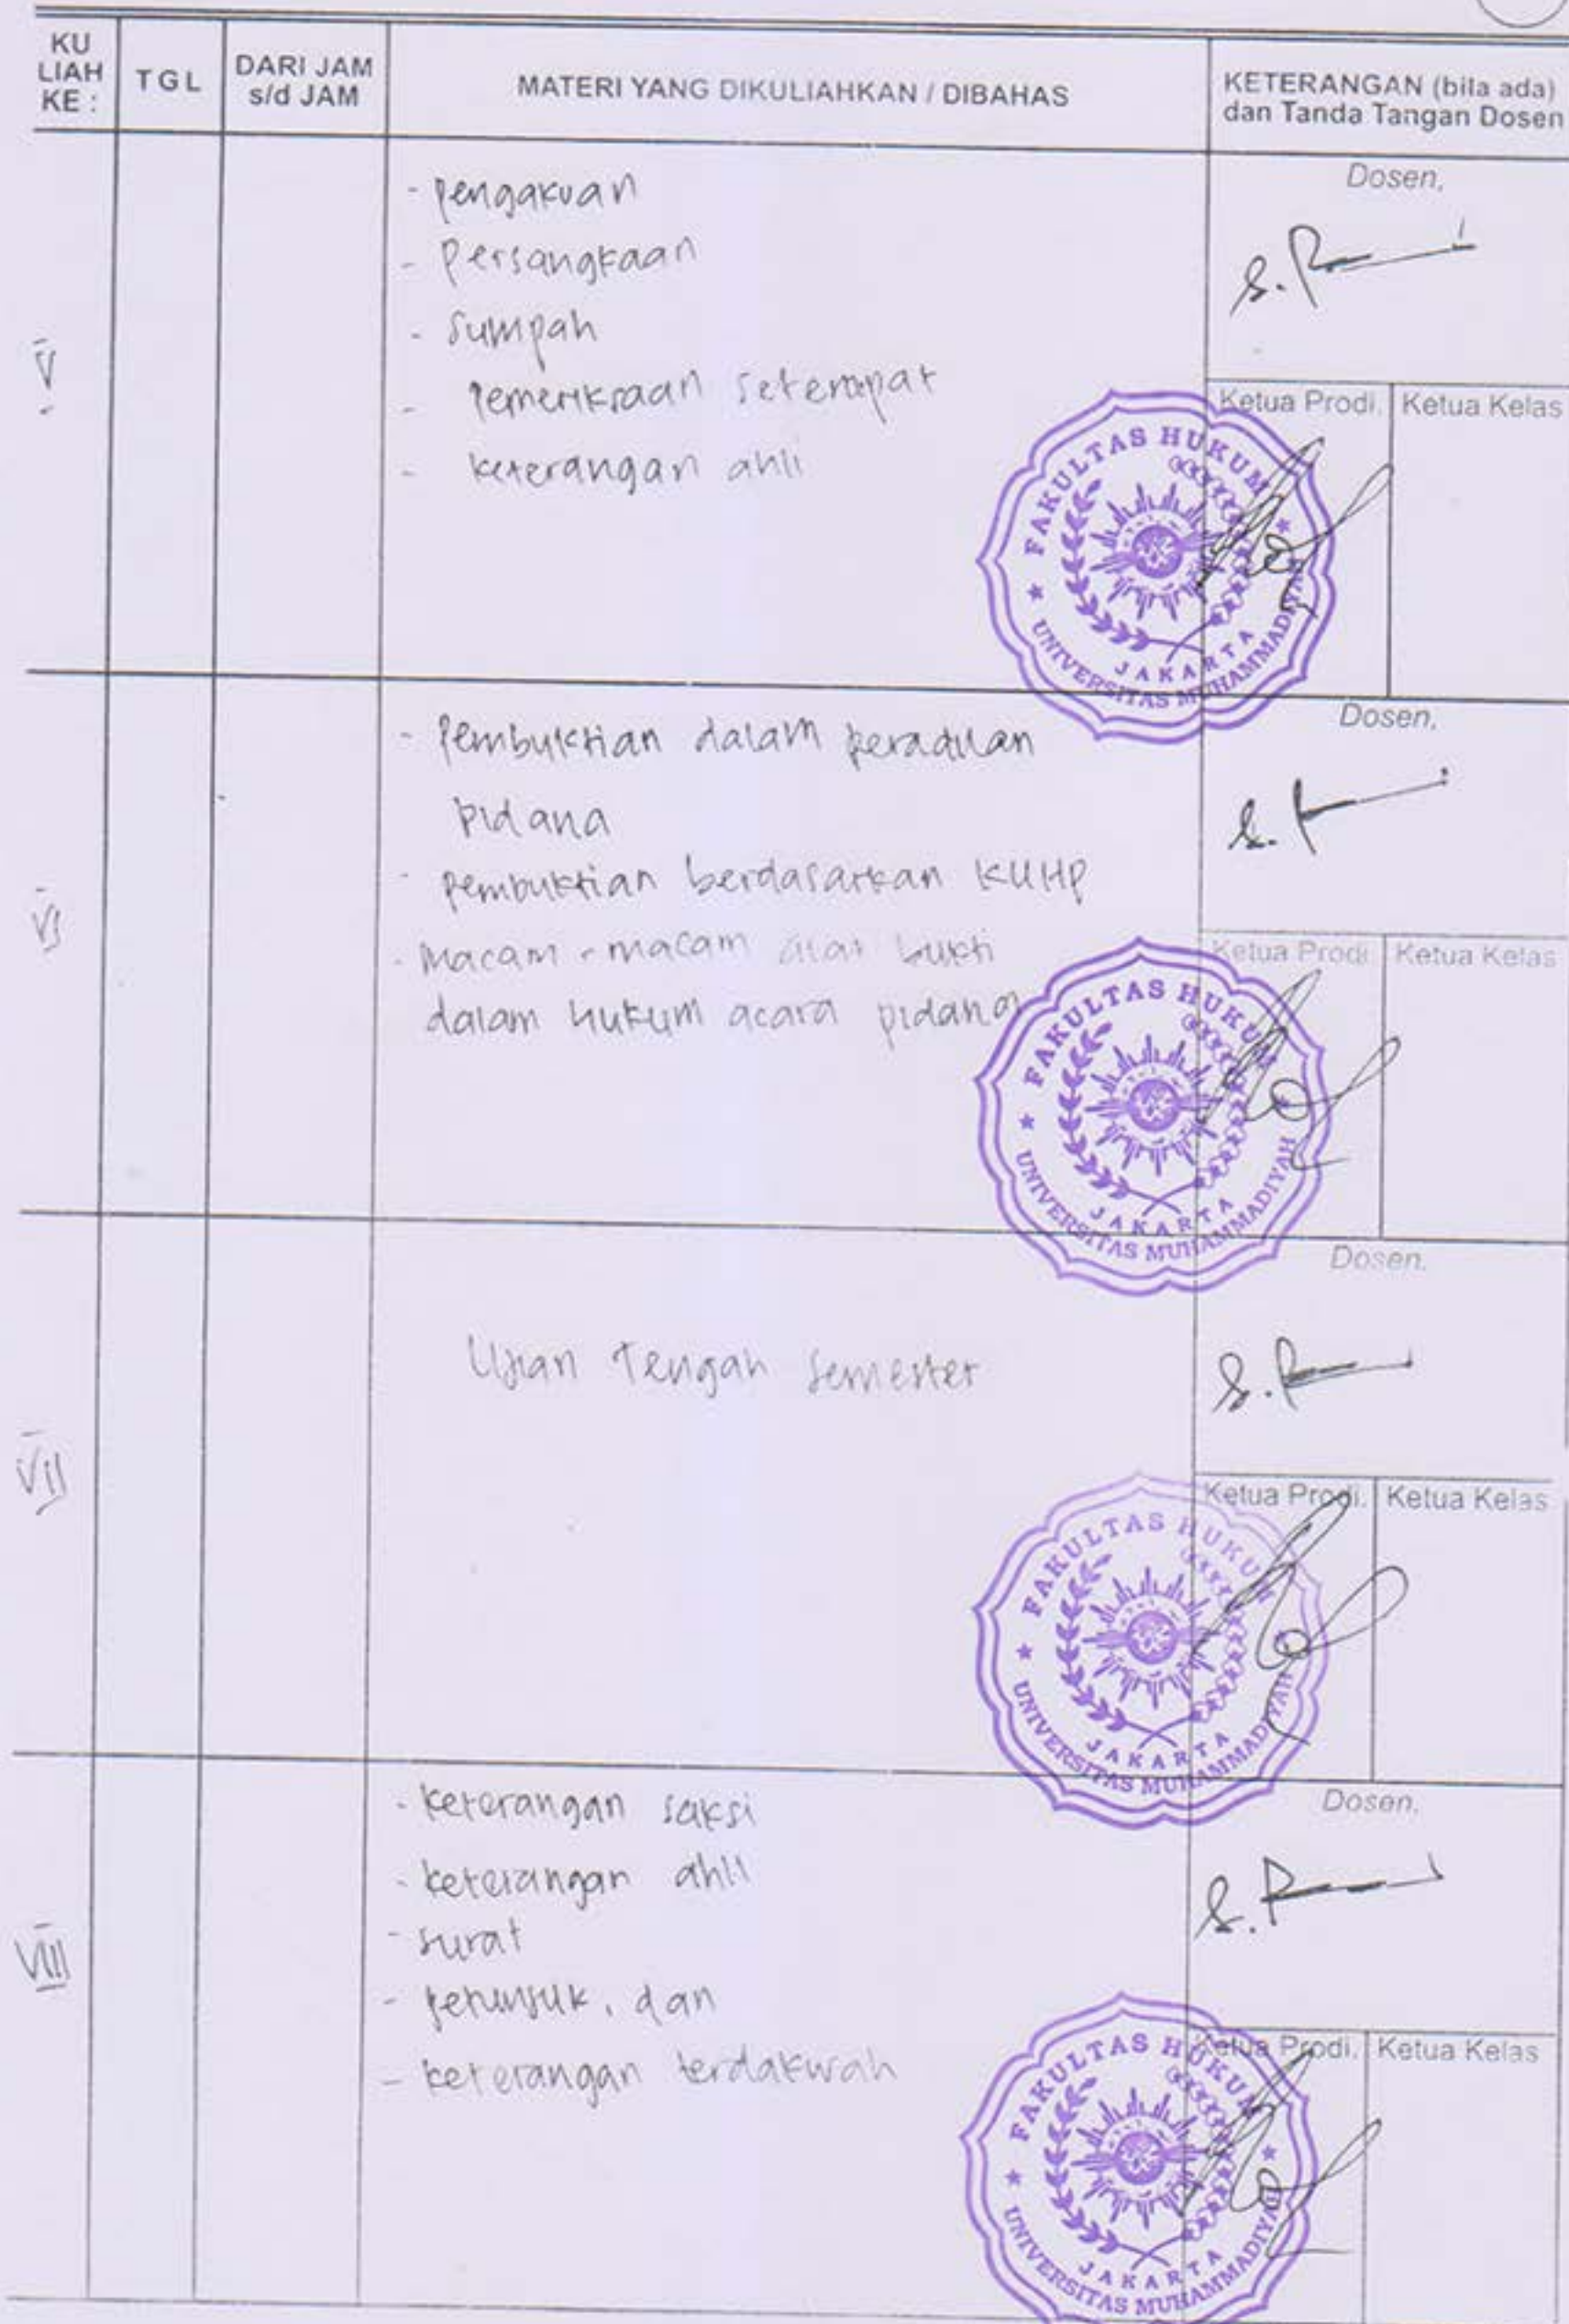 KU
LIAH
KE :
TGL
DARI JAM
s/d JAM
MATERI YANG DIKULIAHKAN / DIBAHAS
KETERANGAN (bila ada)
dan Tanda Tangan Dosen
V
- pengakuan
- Persangkaan
- Sumpah
- Pemeriksaan setempat
- keterangan ahli
Dosen,
Ketua Prodi.
Ketua Kelas
FAKULTAS HUKUM
UNIVERSITAS MUHAMMADIYAH
JAKARTA
VI
- Pembuktian dalam peradilan
pidana
- pembuktian berdasarkan KUHP
- Macam - macam alat bukti
dalam hukum acara pidana
Dosen,
Ketua Prodi
Ketua Kelas
FAKULTAS HUKUM
UNIVERSITAS MUHAMMADIYAH
JAKARTA
VII
Ujian Tengah Semester
Dosen.
Ketua Prodi.
Ketua Kelas
FAKULTAS HUKUM
UNIVERSITAS MUHAMMADIYAH
JAKARTA
VIII
- keterangan saksi
- keterangan ahli
- surat
- petunjuk, dan
- keterangan terdakwah
Dosen.
Ketua Prodi.
Ketua Kelas
FAKULTAS HUKUM
UNIVERSITAS MUHAMMADIYAH
JAKARTA